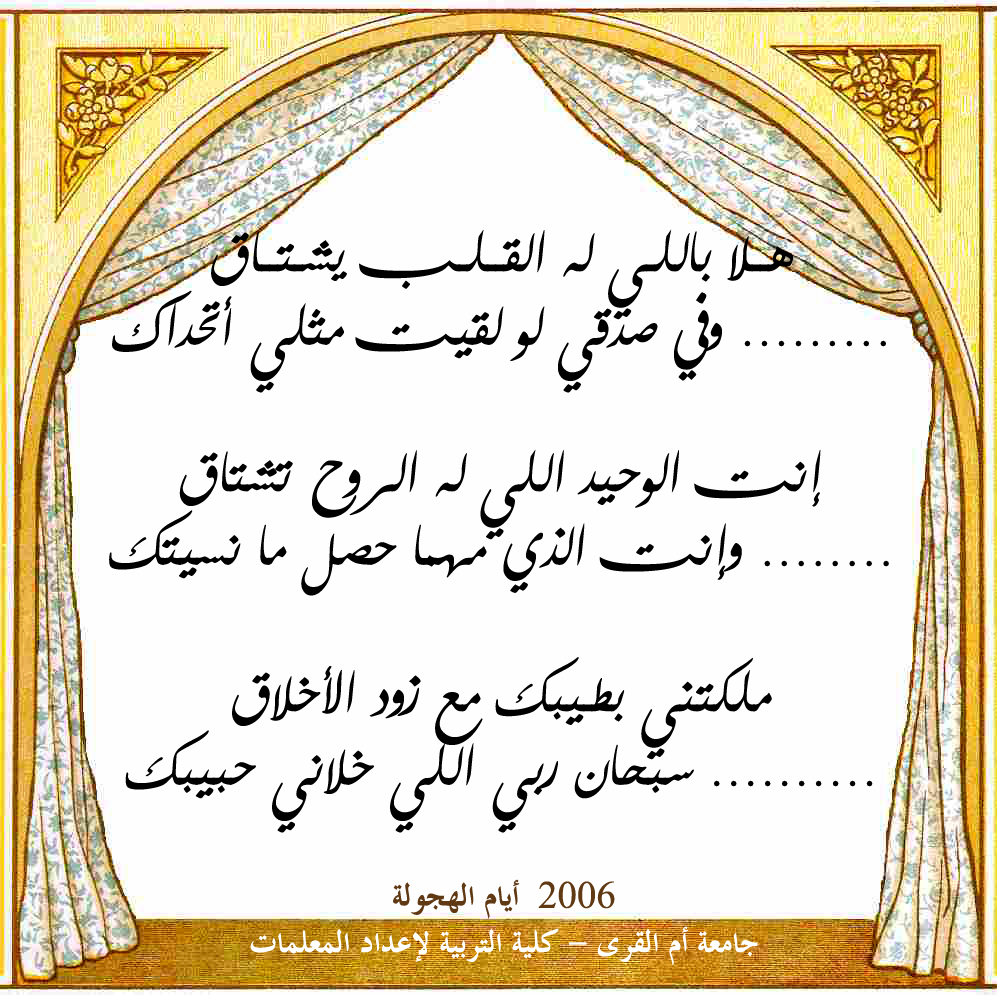 هلا باللي له القلب يشتاق
......... وفي صدقي لو لقيت مثلي أتحداك
إنت الوحيد اللي له الروح تشتاق
........ وإنت الذي مهما حصل ما نسيتك
ملكتني بطيبك مع زود الأخلاق
.......... سبحان ربي اللي خلاني حبيبك
2006 أيام الهجولة
جامعة أم القرى – كلية التربية لإعداد المعلمات